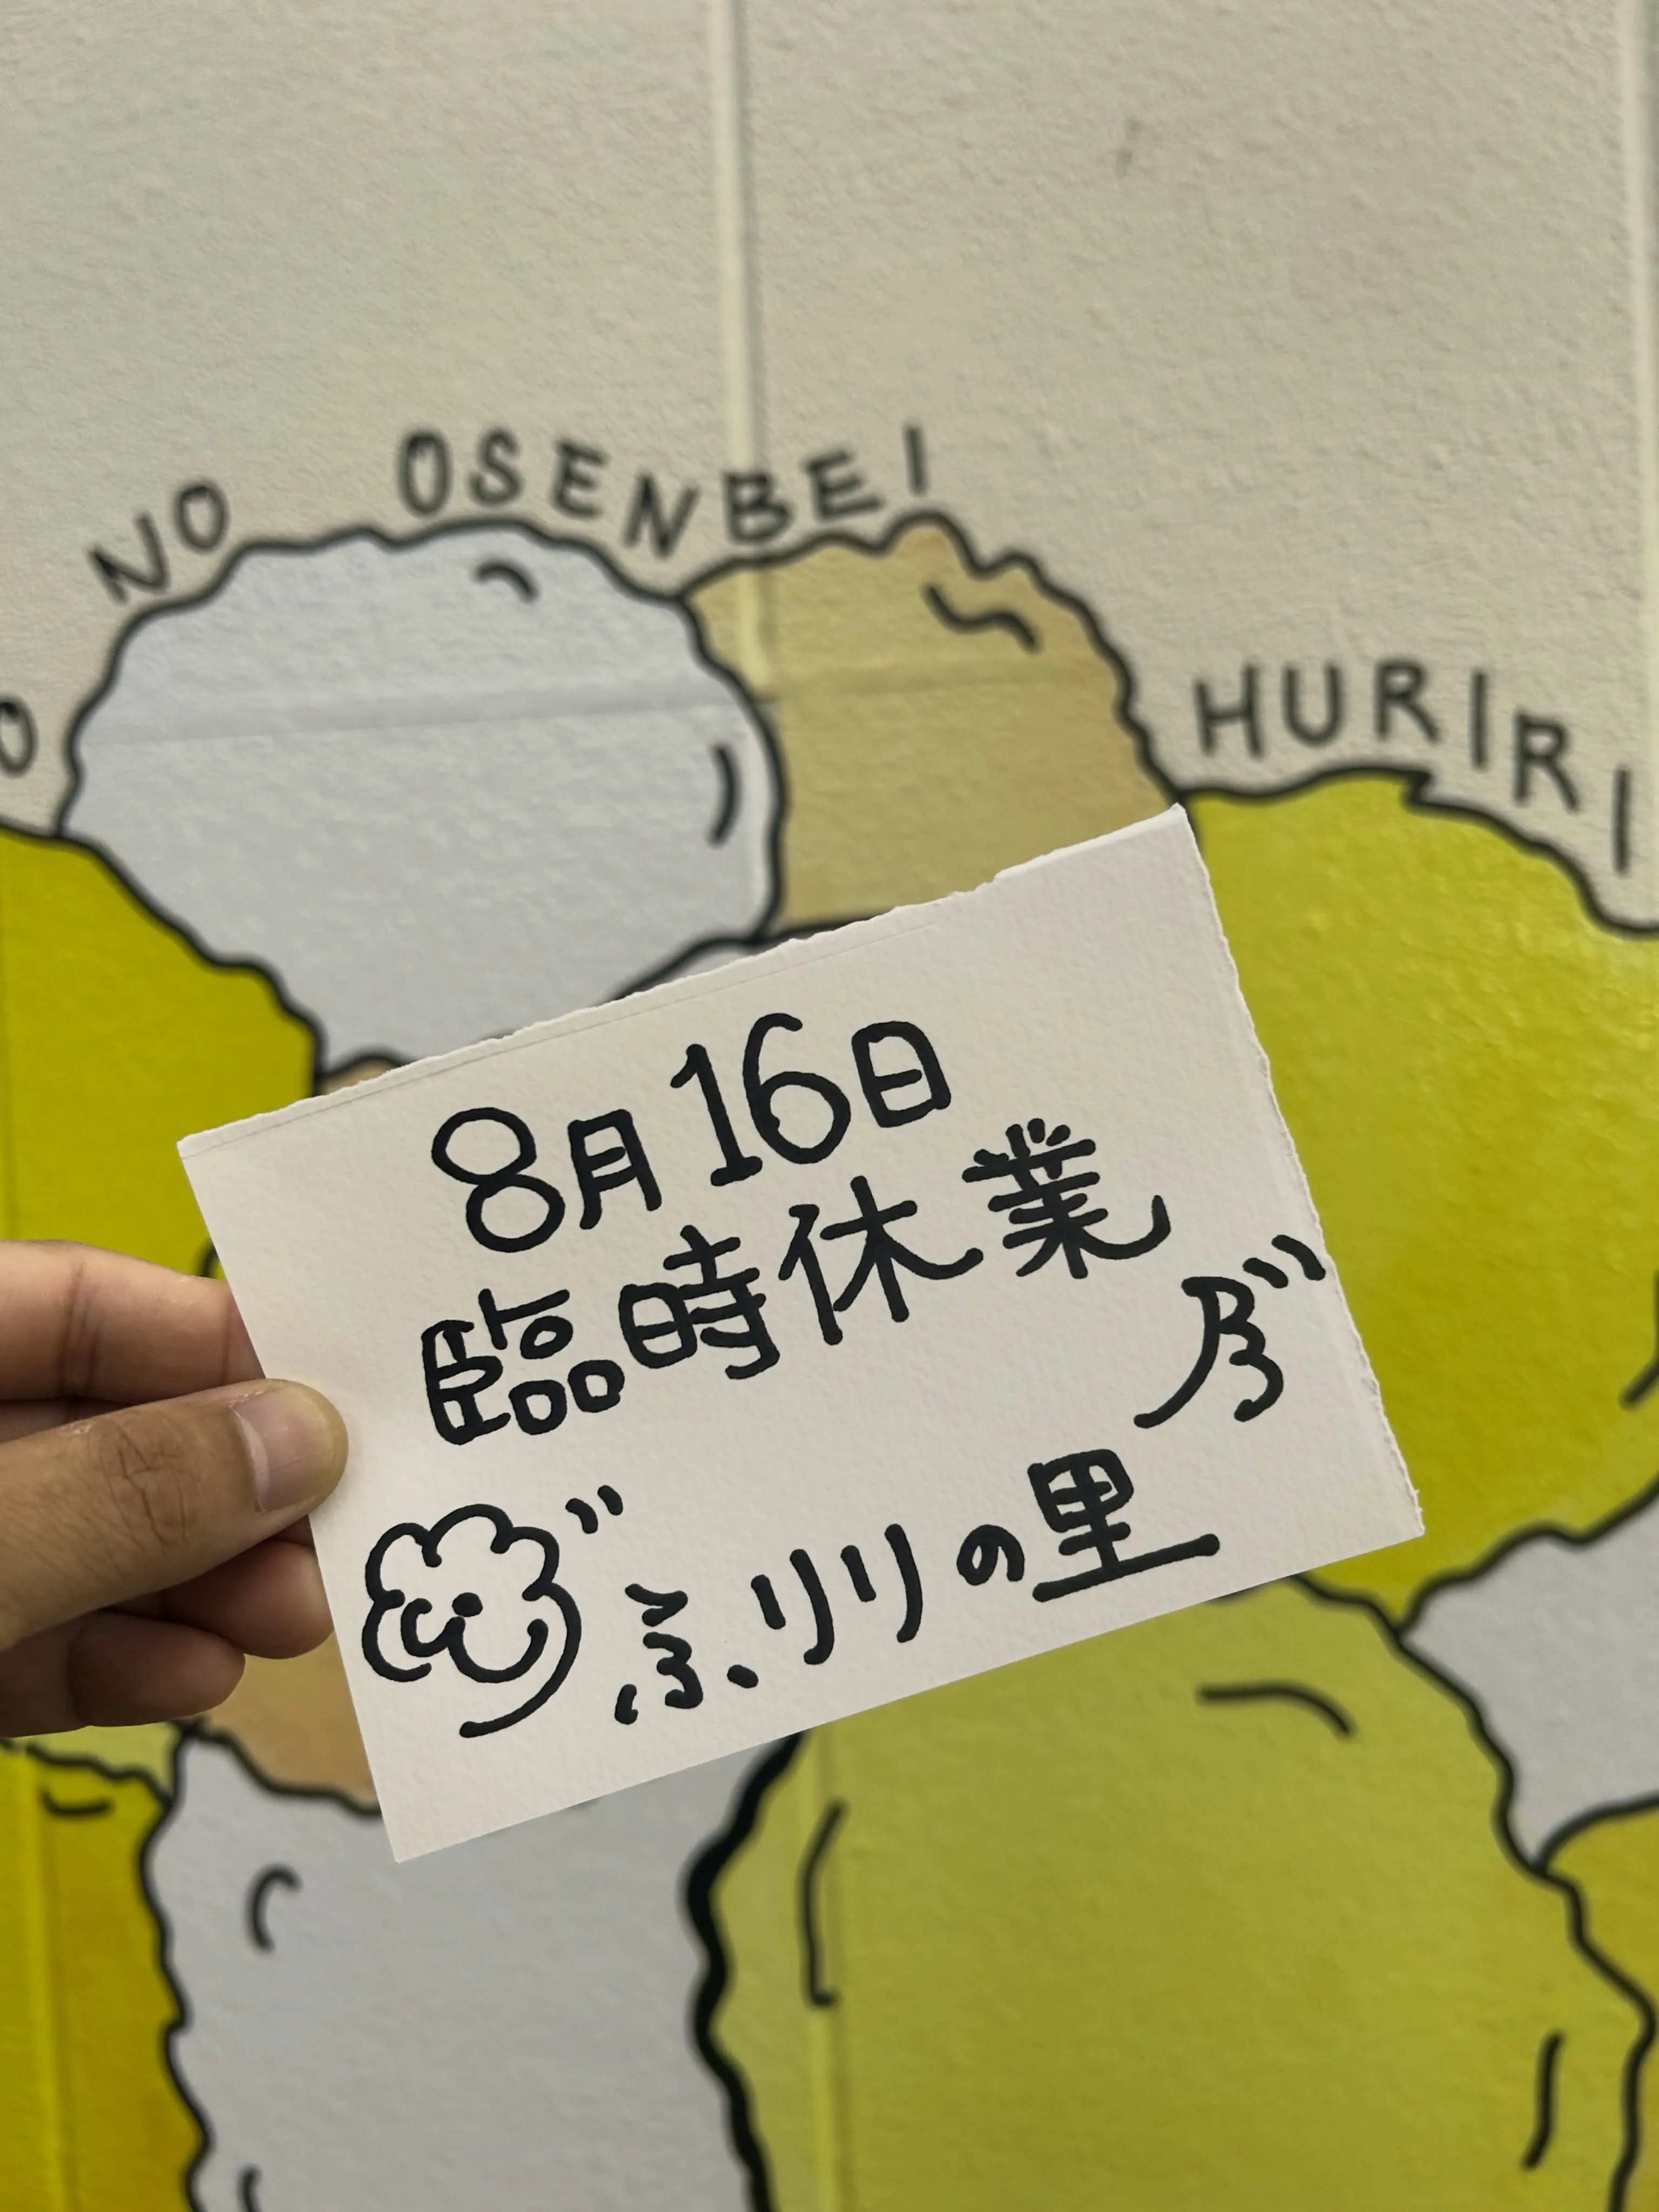 NO OSENBEI HURIRI
8月16日
臨時休業
ふリリの里